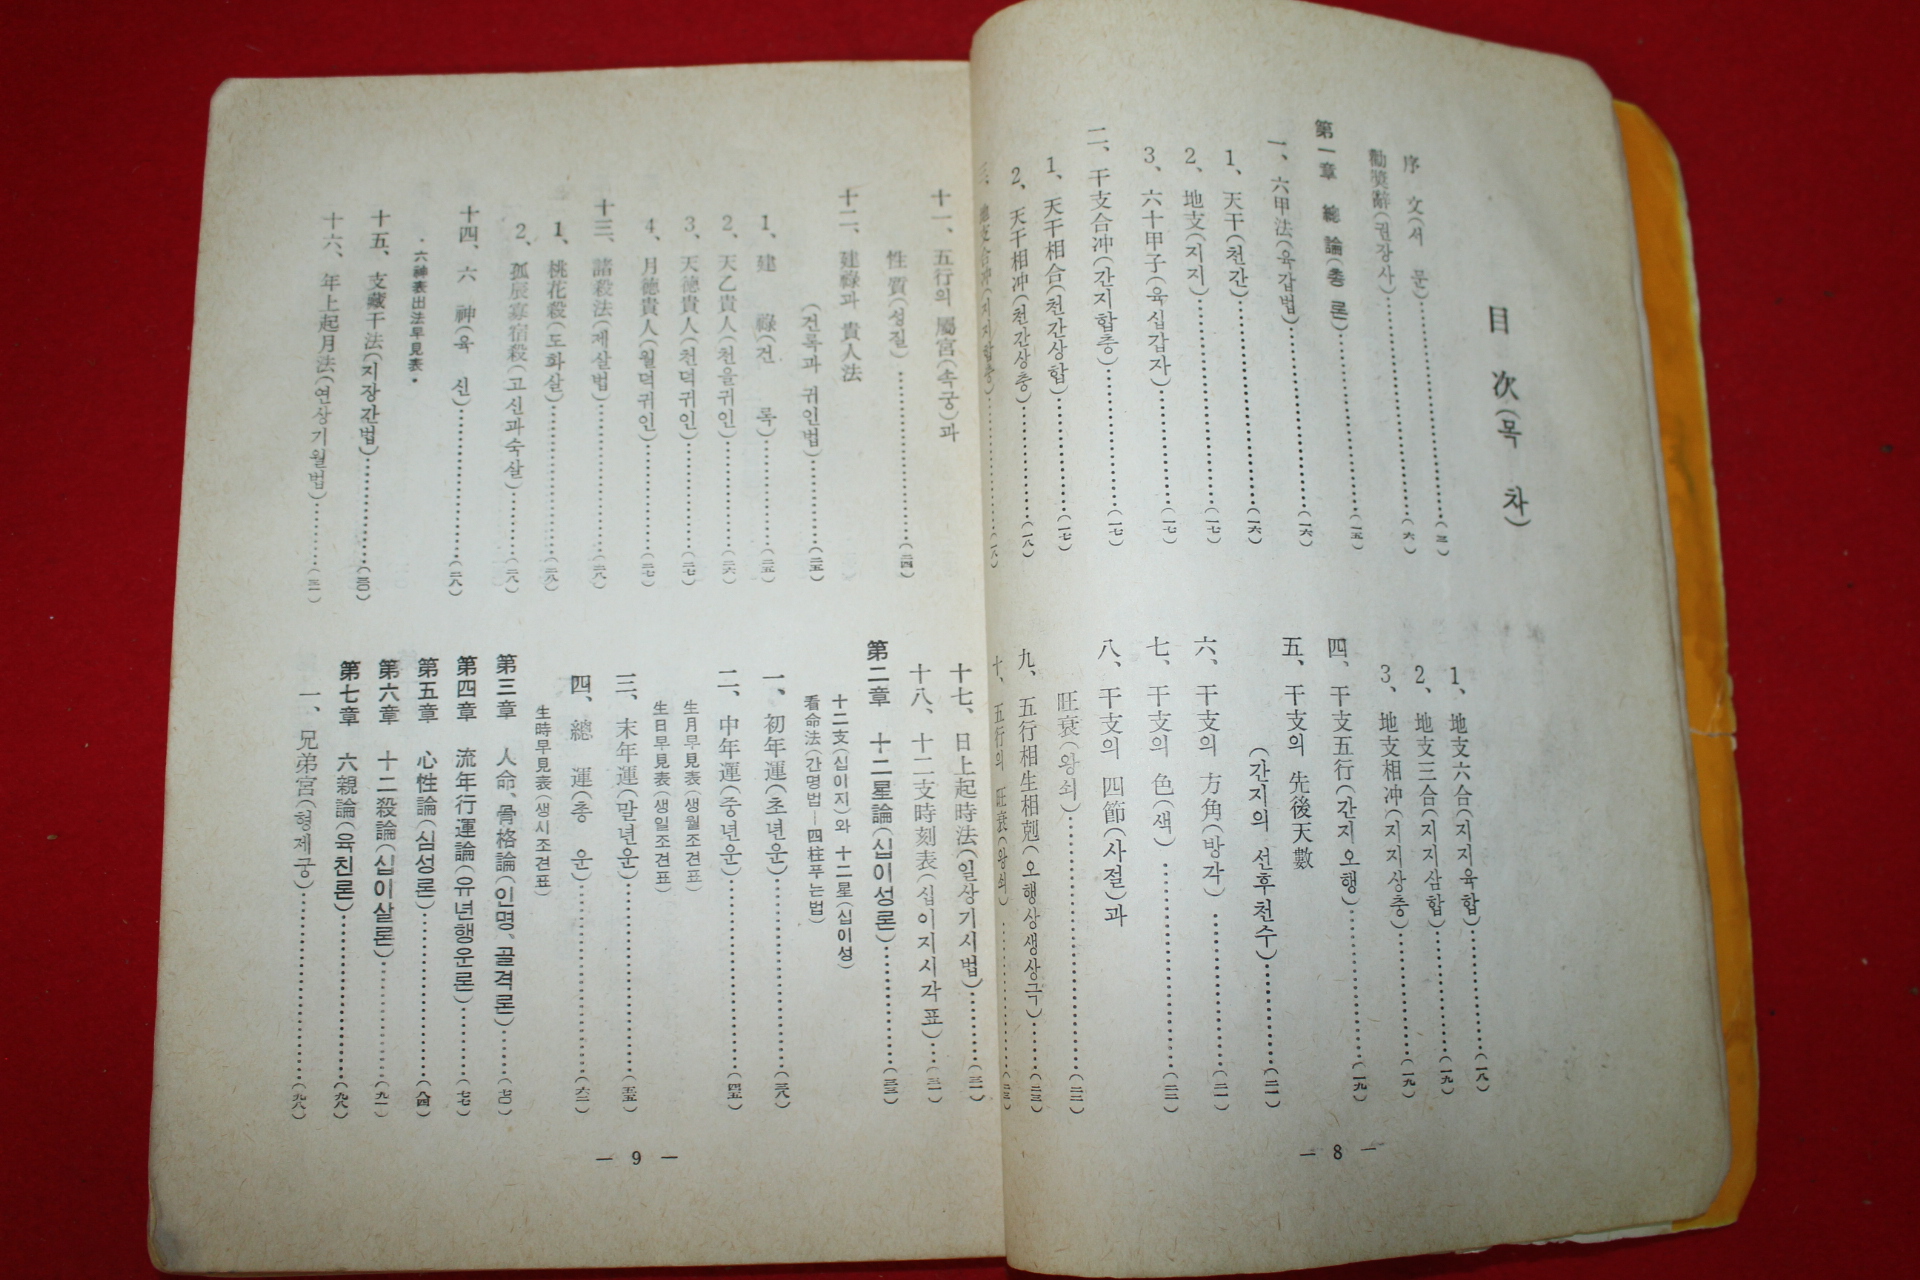 目次(목 차)
序 文(서 문)………(三)
勸奬辭(권장사)………(六)
第一章 總論(총 론)………(一五)
一、六甲法(육갑법)………(一六)
1、天干(천간)………(一六)
2、地支(지지)………(一七)
3、六十甲子(육십갑자)………(一七)
二、干支合冲(간지합충)………(一七)
1、天干相合(천간상합)………(一七)
2、天干相冲(천간상충)………(一八)
三、地支合冲(지지합충)………(一八)
1、地支六合(지지육합)………(一八)
2、地支三合(지지삼합)………(一九)
3、地支相冲(지지상충)………(一九)
四、干支五行(간지오행)………(一九)
五、干支의 先後天數
(간지의 선후천수)………(二一)
六、干支의 方角(방각)………(二一)
七、干支의 色(색)………(二二)
八、干支의 四節(사절)과
旺衰(왕쇠)………(二二)
九、五行相生相剋(오행상생상극)………(二三)
十、五行의 旺衰(왕쇠)………(二三)
— 8 —
十一、五行의 屬宮(속궁)과
性質(성질)………(二四)
十二、建祿과 貴人法
(건록과 귀인법)………(二五)
1、建 祿(건 록)………(二五)
2、天乙貴人(천을귀인)………(二六)
3、天德貴人(천덕귀인)………(二七)
4、月德貴人(월덕귀인)………(二七)
十三、諸殺法(제살법)………(二八)
1、桃花殺(도화살)………(二八)
2、孤辰寡宿殺(고신과숙살)………(二八)
十四、六 神(육 신)………(二八)
·六神表出法早見表·
十五、支藏干法(지장간법)………(三〇)
十六、年上起月法(연상기월법)………(三一)
十七、日上起時法(일상기시법)………(三一)
十八、十二支時刻表(십이지시각표)………(三一)
第二章 十二星論(십이성론)………(三三)
十二支(십이지)와 十二星(십이성)
看命法(간명법—四柱푸는법)
一、初年運(초년운)………(三八)
二、中年運(중년운)………(四五)
生月早見表(생월조견표)
生日早見表(생일조견표)
三、末年運(말년운)………(五五)
四、總 運(총 운)………(六二)
生時早見表(생시조견표)
第三章 人命、骨格論(인명、골격론)………(七〇)
第四章 流年行運論(유년행운론)………(七七)
第五章 心性論(심성론)………(八四)
第六章 十二殺論(십이살론)………(九一)
第七章 六親論(육친론)………(九八)
一、兄弟宮(형제궁)………(九八)
— 9 —